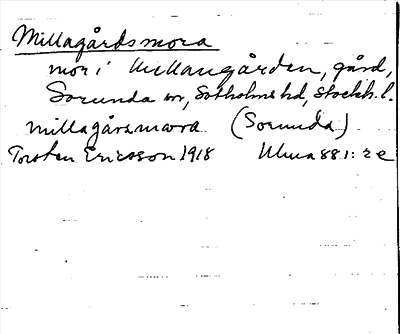 Millagårdsmora
mor i Mellangården, gård,
Sorunda sn, Sotholms hd, Stockh. l.
millagårsmora (Sorunda)
Torsten Ericsson 1918 Ulma 88 1: 2 e